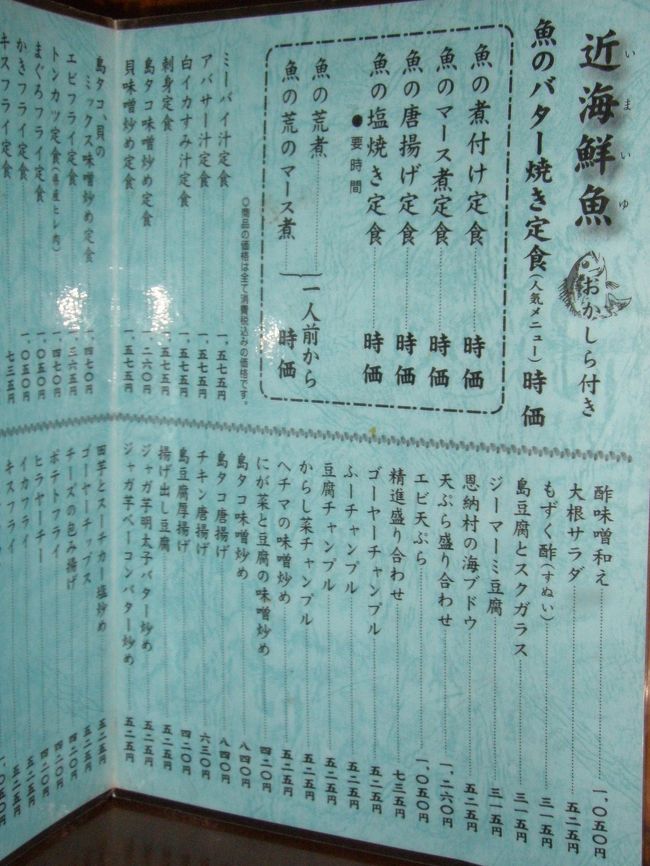 近海鮮魚
いまいゆ
おかしら付き
魚のバター焼き定食(人気メニュー)時価
魚の煮付け定食 時価
魚のマース煮定食 時価
魚の唐揚げ定食 時価
魚の塩焼き定食 時価
●要時間
魚の荒煮
魚の荒のマース煮
一人前から
時価
○商品の価格は全て消費税込みの価格です。
ミーバイ汁定食 一、五七五円
アバサー汁定食 一、五七五円
白イカすみ汁定食 一、五七五円
刺身定食 一、五七五円
島タコ味噌炒め定食 一、二六〇円
貝味噌炒め定食 一、五七五円
島タコ、貝の
ミックス味噌炒め定食 一、四七〇円
エビフライ定食 一、三六五円
トンカツ定食(県産ヒレ肉) 一、四七〇円
まぐろフライ定食 一、〇五〇円
かきフライ定食 一、〇五〇円
キスフライ定食 七三五円
酢味噌和え 一、〇五〇円
大根サラダ 五二五円
もずく酢(すぬい) 三一五円
島豆腐とスクガラス 三一五円
ジーマーミ豆腐 三一五円
恩納村の海ブドウ 五二五円
天ぷら盛り合わせ 一、二六〇円
エビ天ぷら 一、〇五〇円
精進盛り合わせ 七三五円
ゴーヤーチャンプル 五二五円
ふーチャンプル 五二五円
豆腐チャンプル 五二五円
からし菜チャンプル 五二五円
ヘチマの味噌炒め 五二五円
にが菜と豆腐の味噌炒め 四二〇円
島タコ味噌炒め 八四〇円
島タコ唐揚げ 八四〇円
チキン唐揚げ 六三〇円
島豆腐厚揚げ 四二〇円
揚げ出し豆腐 五二五円
ジャガ芋明太子バター炒め 五二五円
ジャガ芋ベーコンバター炒め 五二五円
田芋とスーチカー塩炒め 五二五円
ゴーヤーチップス 五二五円
チーズの包み揚げ 四二〇円
ポテトフライ 四二〇円
ヒラヤーチー 四二〇円
イカフライ 五二五円
キスフライ 五二五円
一、〇五〇円